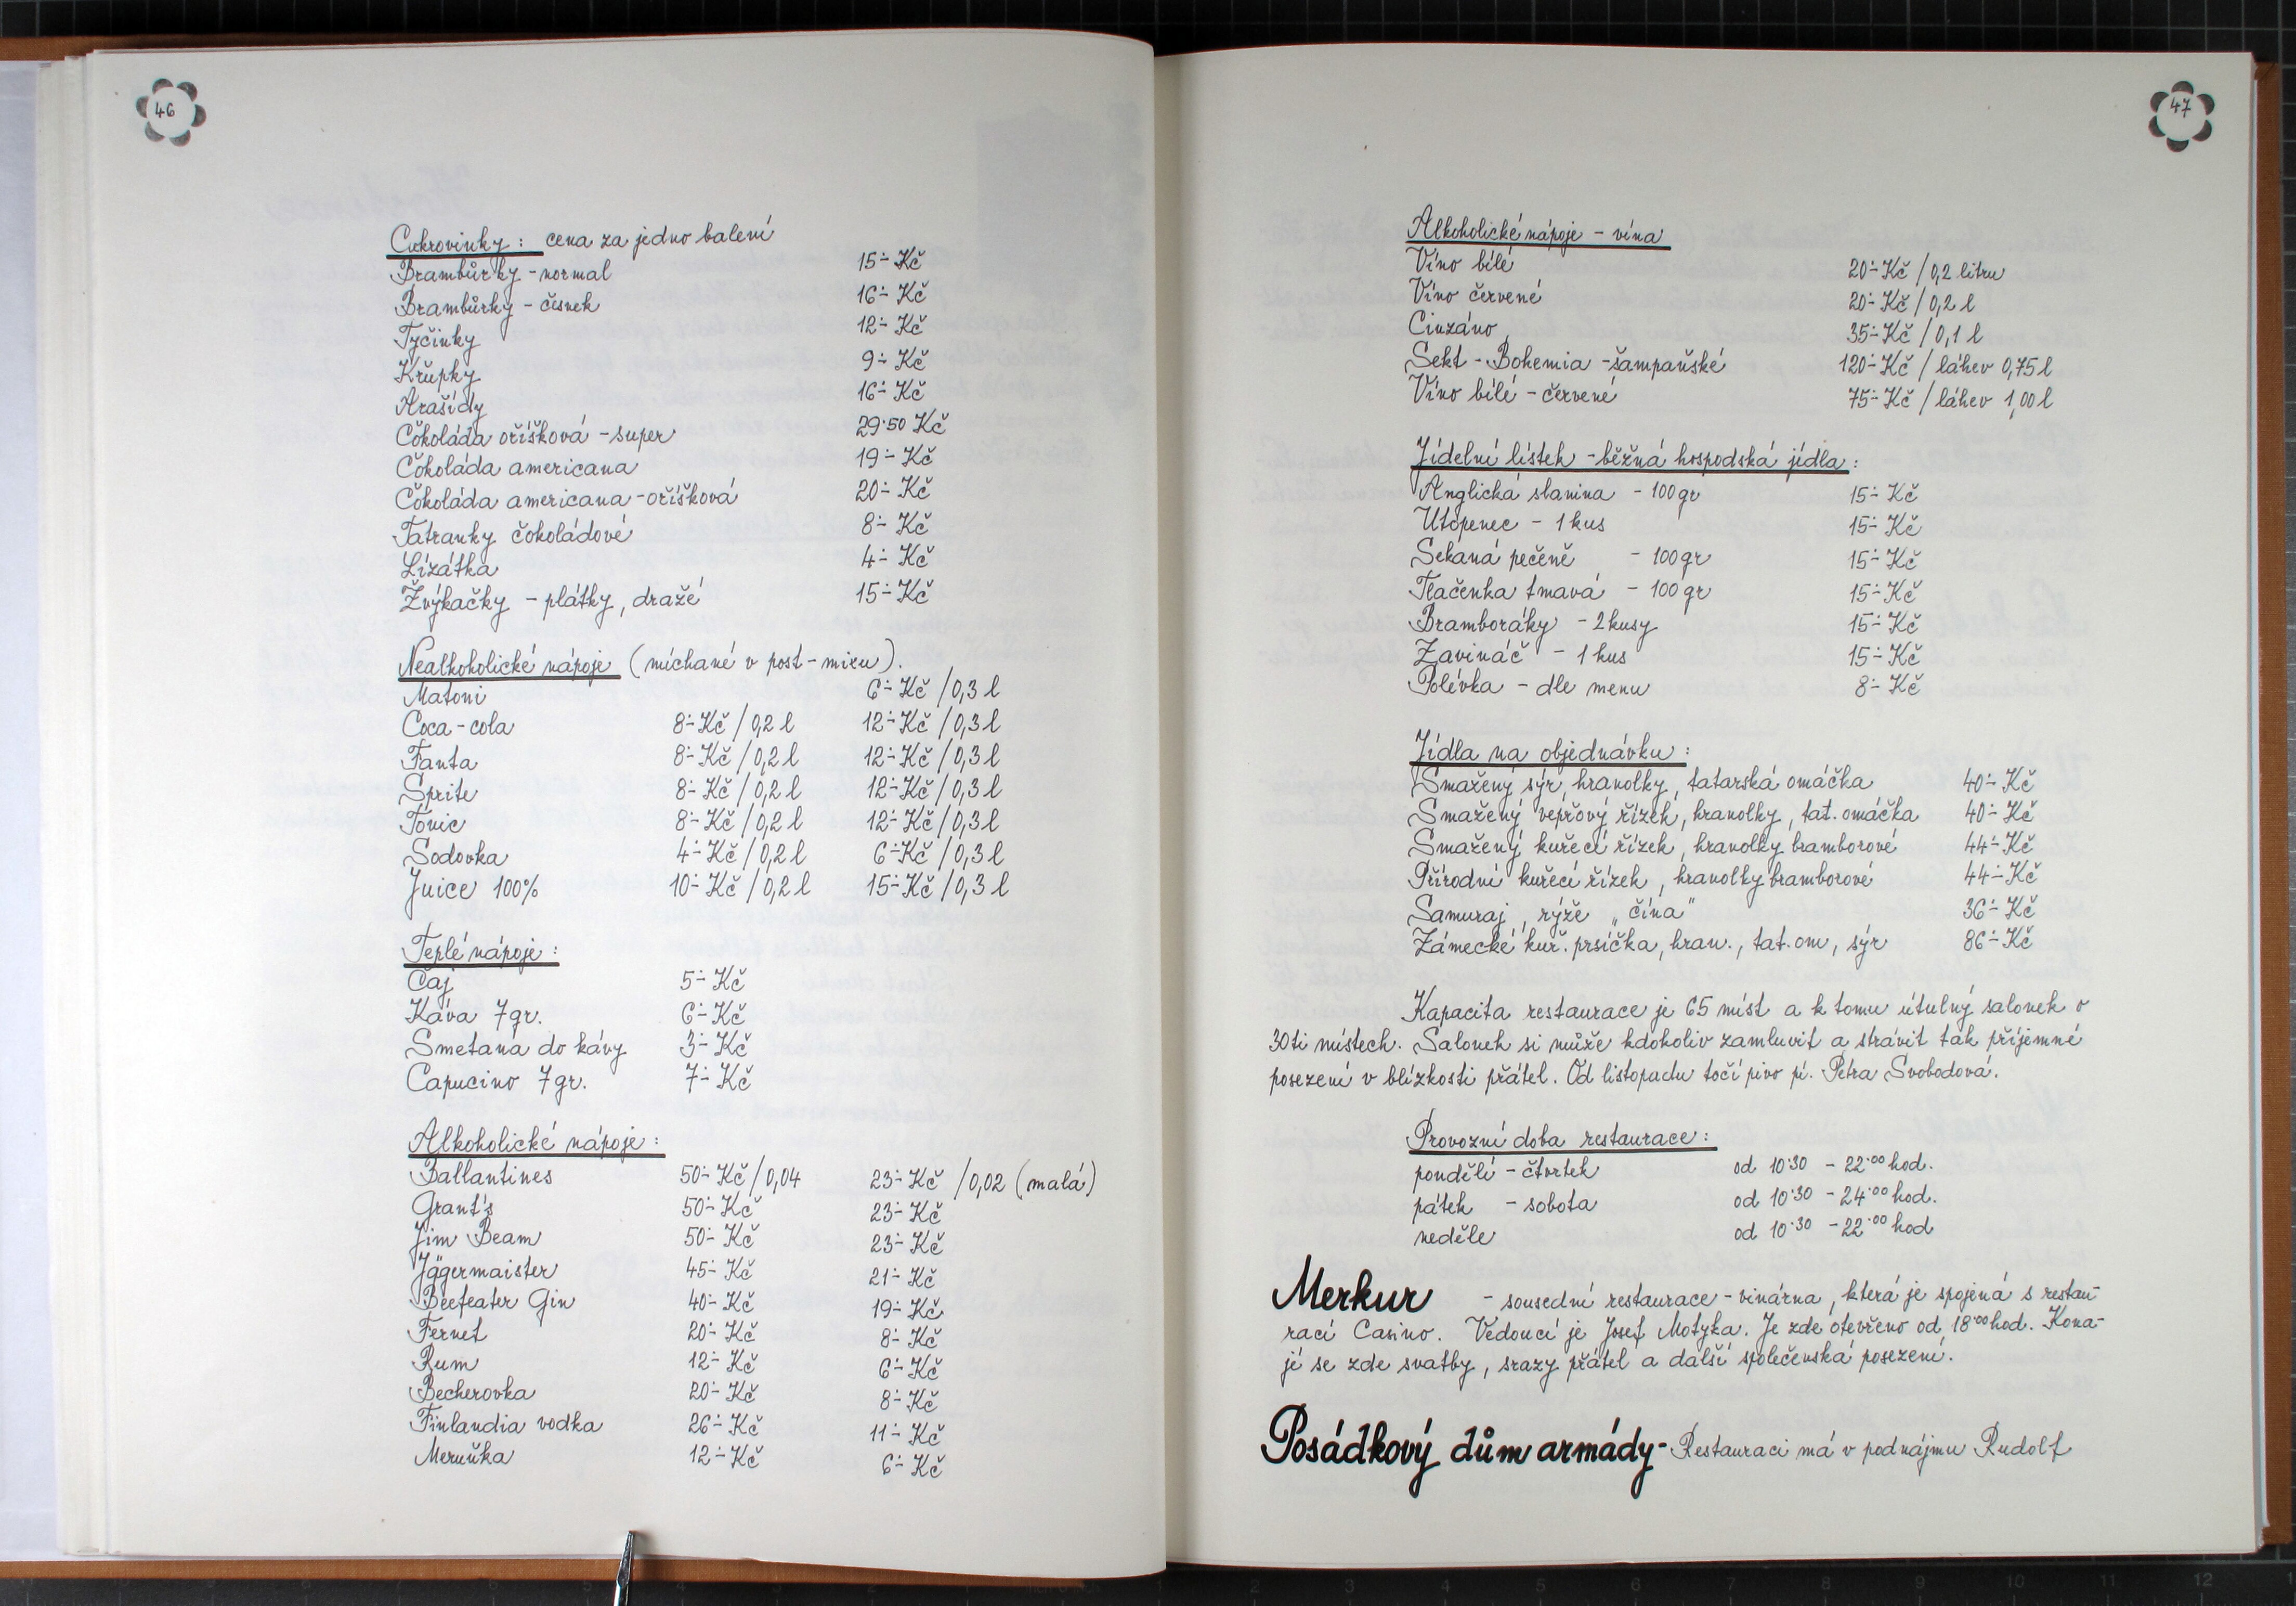 46
Cukrovinky : cena za jedno balení
Brambůrky - normal 15·- Kč
Brambůrky - česnek 16·- Kč
Tyčinky 12·- Kč
Křupky 9·- Kč
Arašídy 16·- Kč
Čokoláda oříšková - super 29·50 Kč
Čokoláda americana 19·- Kč
Čokoláda americana - oříšková 20·- Kč
Tatranky čokoládové 8·- Kč
Lízátka 4·- Kč
Žvýkačky - plátky, dražé 15·- Kč
Nealkoholické nápoje (míchané v post-mixu).
Matoni 6·- Kč / 0,3 l
Coca-cola 8·- Kč / 0,2 l 12·- Kč / 0,3 l
Fanta 8·- Kč / 0,2 l 12·- Kč / 0,3 l
Sprite 8·- Kč / 0,2 l 12·- Kč / 0,3 l
Tonic 8·- Kč / 0,2 l 12·- Kč / 0,3 l
Sodovka 4·- Kč / 0,2 l 6·- Kč / 0,3 l
Juice 100% 10·- Kč / 0,2 l 15·- Kč / 0,3 l
Teplé nápoje :
Čaj 5·- Kč
Káva 7gr. 6·- Kč
Smetana do kávy 3·- Kč
Capucino 7gr. 7·- Kč
Alkoholické nápoje :
Ballantines 50·- Kč / 0,04 23·- Kč / 0,02 (malá)
Grant's 50·- Kč 23·- Kč
Jim Beam 50·- Kč 23·- Kč
Jägermaister 45·- Kč 21·- Kč
Beefeater Gin 40·- Kč 19·- Kč
Fernet 20·- Kč 8·- Kč
Rum 12·- Kč 6·- Kč
Becherovka 20·- Kč 8·- Kč
Finlandia vodka 26·- Kč 11·- Kč
Meruňka 12·- Kč 6·- Kč
47
Alkoholické nápoje - vína
Víno bílé 20·- Kč / 0,2 litru
Víno červené 20·- Kč / 0,2 l
Cinzáno 35·- Kč / 0,1 l
Sekt - Bohemia - šampaňské 120·- Kč / láhev 0,75 l
Víno bílé - červené 75·- Kč / láhev 1,00 l
Jídelní lístek - běžná hospodská jídla :
Anglická slanina - 100gr 15·- Kč
Utopenec - 1 kus 15·- Kč
Sekaná pečeně - 100gr 15·- Kč
Tlačenka tmavá - 100gr 15·- Kč
Bramboráky - 2 kusy 15·- Kč
Zavináč - 1 kus 15·- Kč
Polévka - dle menu 8·- Kč
Jídla na objednávku :
Smažený sýr, hranolky, tatarská omáčka 40·- Kč
Smažený vepřový řízek, hranolky, tat. omáčka 40·- Kč
Smažený kuřecí řízek, hranolky bramborové 44·- Kč
Přírodní kuřecí řízek, hranolky bramborové 44·- Kč
Samuraj, rýže „čína" 36·- Kč
Zámecké kuř. prsíčka, hran., tat. om, sýr 86·- Kč
Kapacita restaurace je 65 míst a k tomu útulný salonek o
30ti místech. Salonek si může kdokoliv zamluvit a strávit tak příjemné
posezení v blízkosti přátel. Od listopadu točí pivo pí. Petra Svobodová.
Provozní doba restaurace :
pondělí - čtvrtek od 10·30 - 22·00 hod.
pátek - sobota od 10·30 - 24·00 hod.
neděle od 10·30 - 22·00 hod
Merkur - sousední restaurace - vinárna, která je spojená s restau-
rací Casino. Vedoucí je Josef Motyka. Je zde otevřeno od 18·00 hod. Kona-
jí se zde svatby, srazy přátel a další společenská posezení.
Posádkový dům armády - Restauraci má v podnájmu Rudolf